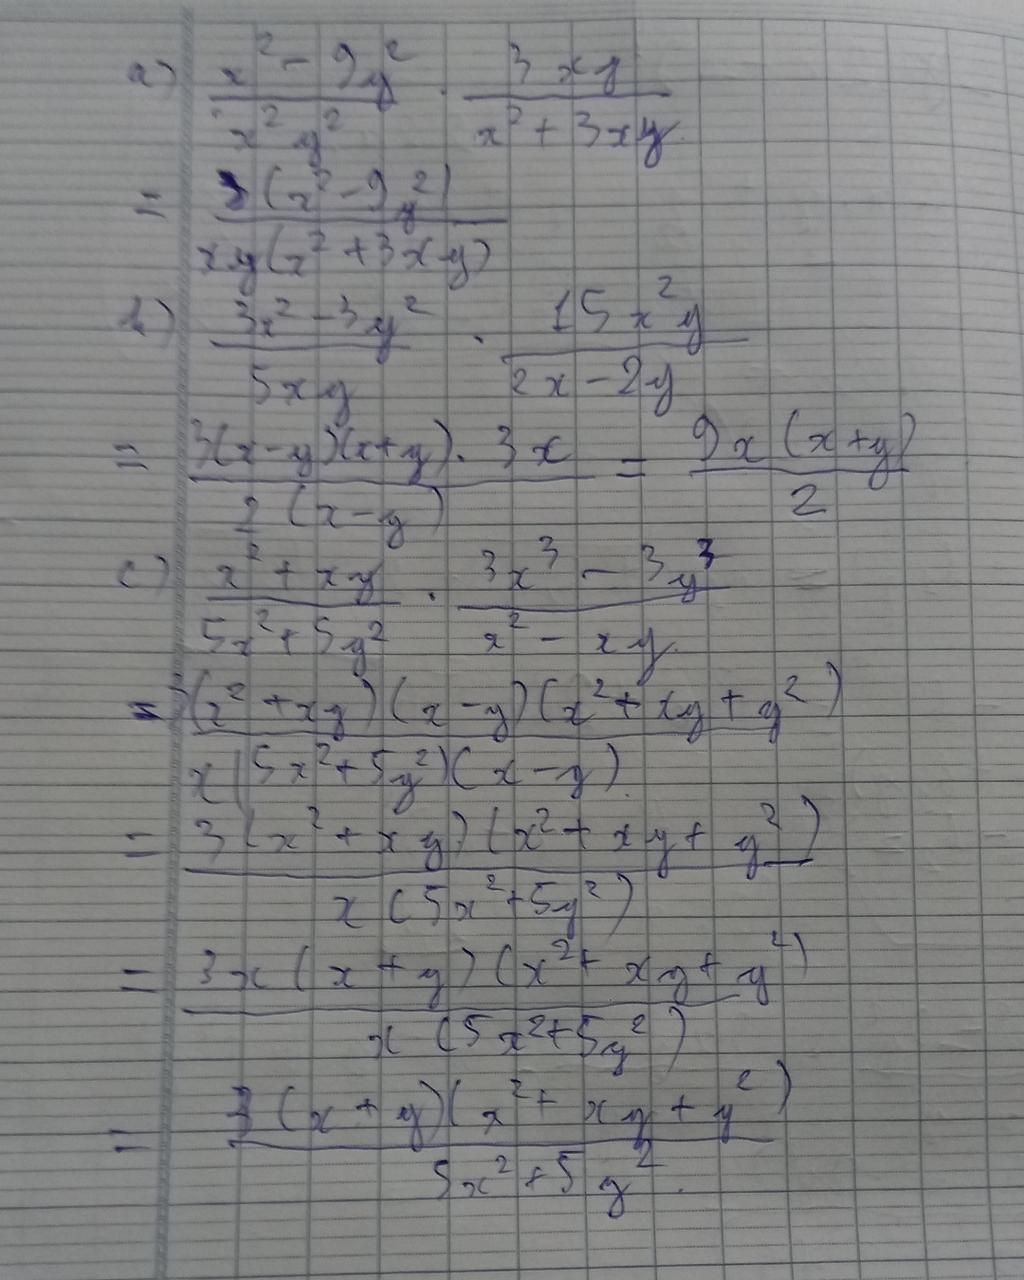 a) \frac{x^2 - 9y^2}{x^2y^2} \cdot \frac{3xy}{x^2 + 3xy}
= \frac{3(x^2 - 9y^2)}{xy(x^2 + 3xy)}
b) \frac{3x^2 - 3y^2}{5xy} \cdot \frac{15x^2y}{2x - 2y}
= \frac{3(x-y)(x+y) \cdot 3x}{2(x-y)} = \frac{9x(x+y)}{2}
c) \frac{x^2 + xy}{5x^2 + 5y^2} \cdot \frac{3x^3 - 3y^3}{x^2 - xy}
= \frac{(x^2 + xy)(x-y)(x^2 + xy + y^2)}{x(5x^2 + 5y^2)(x-y)}
= \frac{3(x^2 + xy)(x^2 + xy + y^2)}{x(5x^2 + 5y^2)}
= \frac{3x(x+y)(x^2 + xy + y^2)}{x(5x^2 + 5y^2)}
= \frac{3(x+y)(x^2 + xy + y^2)}{5x^2 + 5y^2}